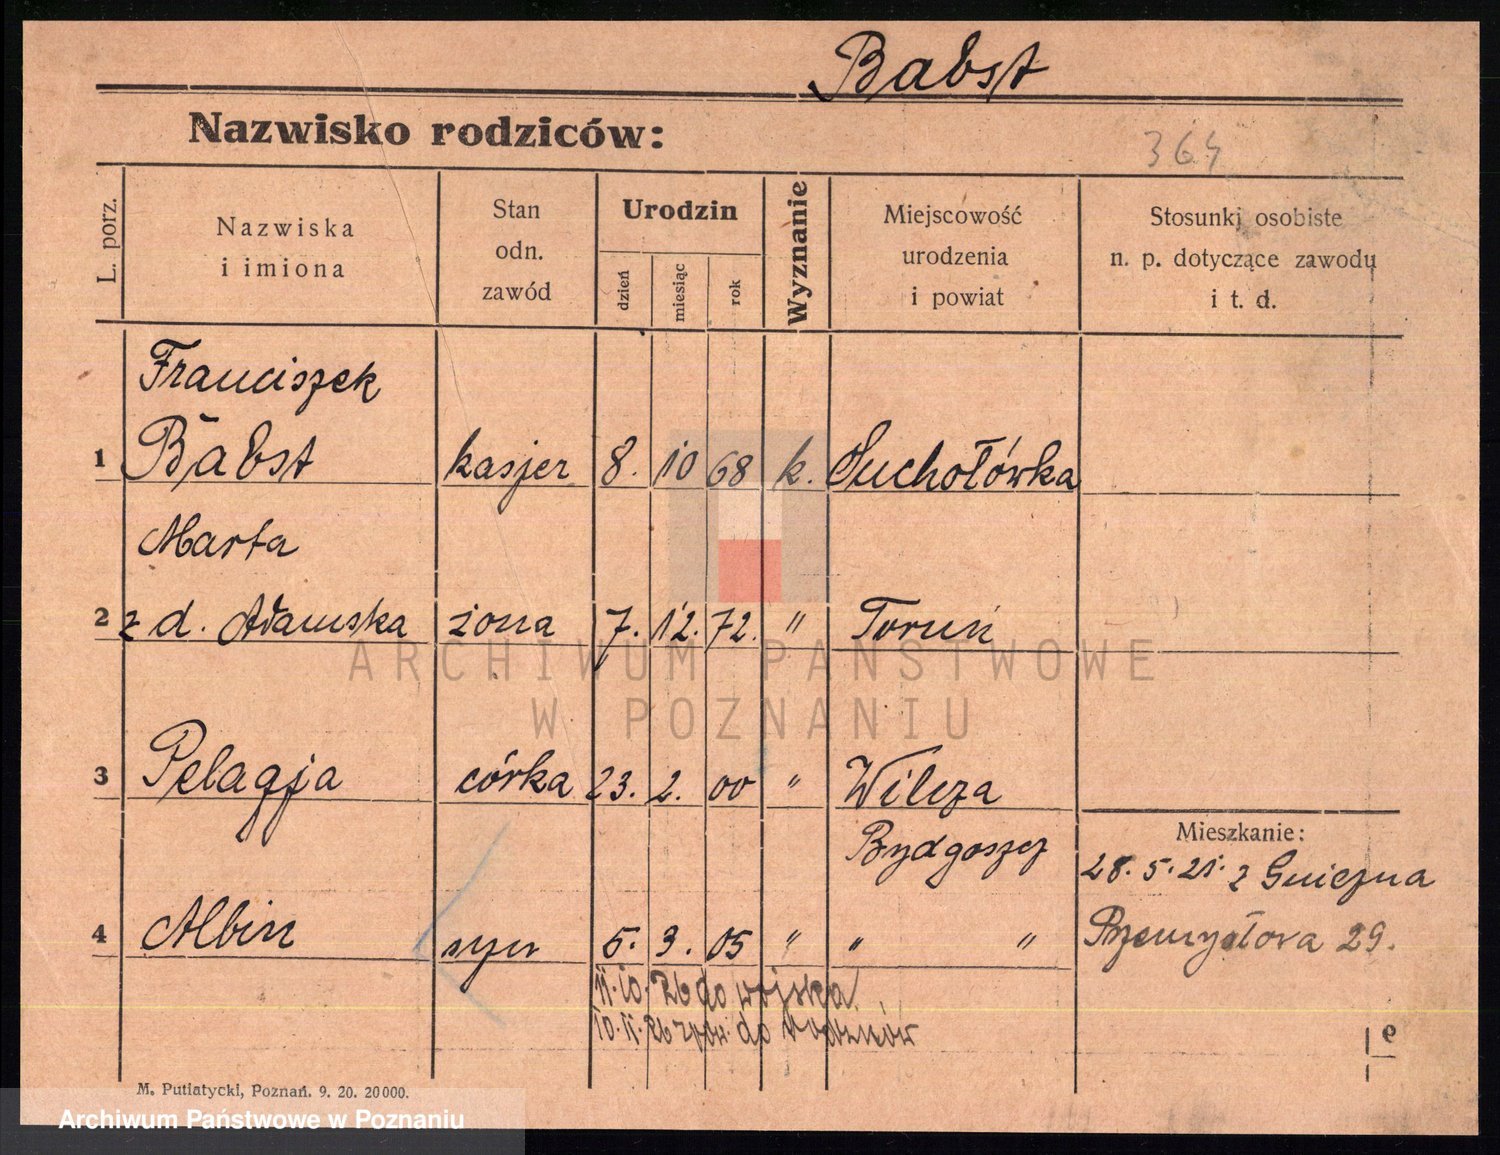 Babst
Nazwisko rodziców:
364
L. porz.
Nazwiska
i imiona
Stan
odn.
zawód
Urodzin
dzień
miesiąc
rok
Wyznanie
Miejscowość
urodzenia
i powiat
Stosunki osobiste
n. p. dotyczące zawodu
i t. d.
Franciszek
1 Babst kasjer 8. 10 68 k. Suchołówka
Marta
2 z d. Adamska żona 7. 12. 72. " Toruń
3 Pelagja córka 23. 2. 00 " Wilcza
Bydgoszcz
Mieszkanie:
28. 5. 21. z Gniezna
4 Albin syn 5. 3. 05 " " "
Przemysłowa 29.
11.10. 26 do wojska
10.11.26 do rodziców
e
M. Putiatycki, Poznań. 9. 20. 20000.
ARCHIWUM PAŃSTWOWE
W POZNANIU
Archiwum Państwowe w Poznaniu